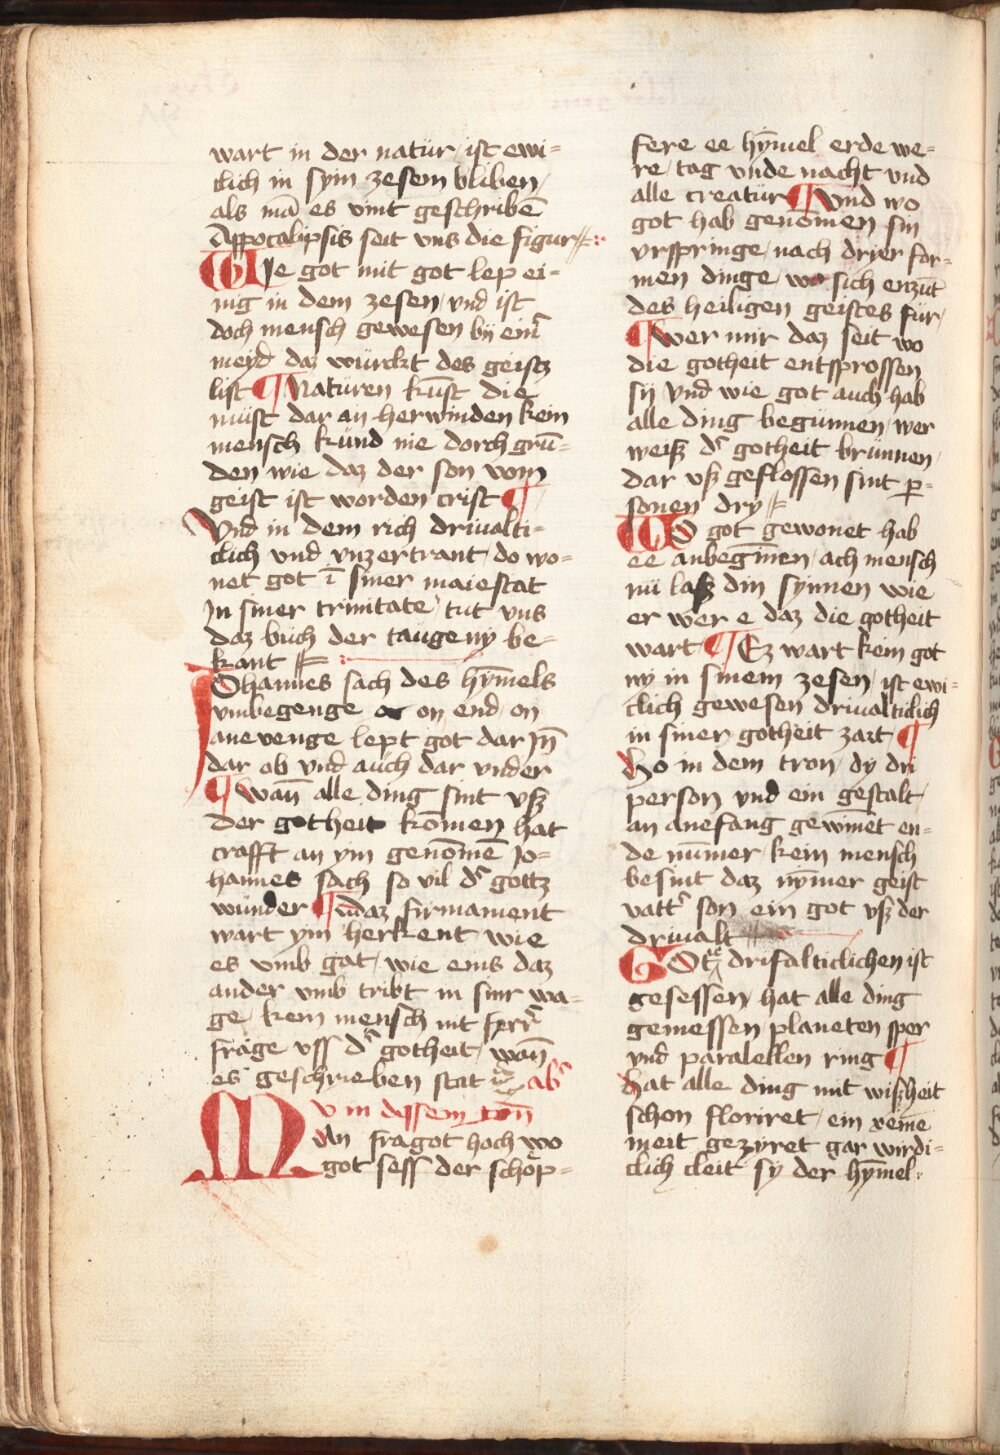 wart in der natür / ist ewi=
clich in sym zesem bliben /
als mā es vint geschribē
Appocalipsis seit vns die figur
WIe got mit got lep ei=
nig in dem zesen / vnd ist
doch mensch gewesen bÿ eim̄
meyd daz würckt des geistz
list ¶ Natüren kūst die
müst dar an her winden kein
mensch künd nie dorch grū=
den wie daz der son vom
geist ist worden crist ¶
Vnd in dem rich driualti=
clich vnd vnzertrant / do wo=
net got ī siner maiestat
In siner trinitate / tut vns
daz büch der taügeny be=
kant
IOhannes sach des hȳmels
vmbegenge on end / on
anevenge lept got dar Jn̄
dar ob vnd aüch dar vnder
¶ wan̄ alle ding sint vsz
der gotheit kōmen hat
crafft an ym genōmē Jo=
hannes sach so vil d' gottz
wünder ¶ daz firmament
wart ym herkent / wie
es vmb gat / wie eins daz
ander vmb tribt in sinr wa=
ge / kein mensch nit ferr'
frage vss d' gotheit / wan̄
es geschrieben stat
V in dissem ton̄
MAn fragot hoch wo
got sess der schöp=
fere ee hȳmel erde we=
re / tag vnde nacht vnd
alle creatür ¶ Vnd wo
got hab genōmen sin
vrsprünge / nach drier for=
men dinge / wo sich enzūt
des heiligen geistes für /
¶ wer mir daz seit wo
die gotheit entsprossen
sÿ vnd wie got auch hab
alle ding begünnen / wer
weisz d' gotheit brünnen /
dar vsz geflossen sint per=
sonen dry
WO got gewonet hab
ee anbegīnen / ach mensch
nü lasz din synnen wie
er wer e daz die gotheit
wart ¶ Ez wart kein got
ny in sinem zesen / ist ewi=
clich gewesen driualticlich
in siner gotheit zart ¶
Ho in dem tron / dy dri
person vnd ein gestalt /
an anefang gewinnēt en=
de nūmer / kein mensch
besint daz nȳmer geist
vatt' son ein got vsz der
driualt
GOt drifalticlichen ist
gesessen / hat alle ding
gemessen planeten sper
vnd paralellen ring ¶
Hat alle ding mit wiszheit
schon floriret / ein
meit gezyret gar wirdi=
clich cleit sy der hȳmel